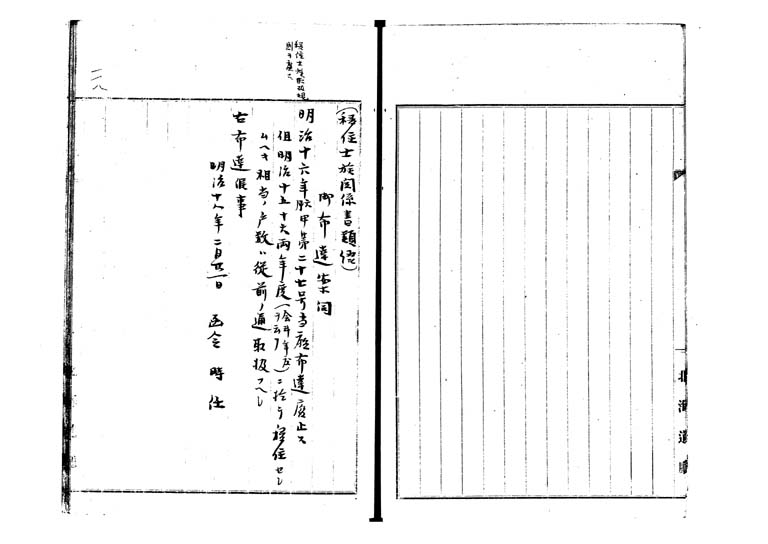 移住士族取扱規
則ヲ廃ス
(移住士族関係書類綴)
御布達案伺
明治十六年 甲第二十七号当庁布達廃止ス
但明治十五十六両年度(会計年度ヲ云フ)ニ於テ移住セシ
ムヘキ相当ノ戸数ハ従前ノ通取扱フヘシ
右布達候事
明治十八年二月 日 函令 時任
一八
北海道